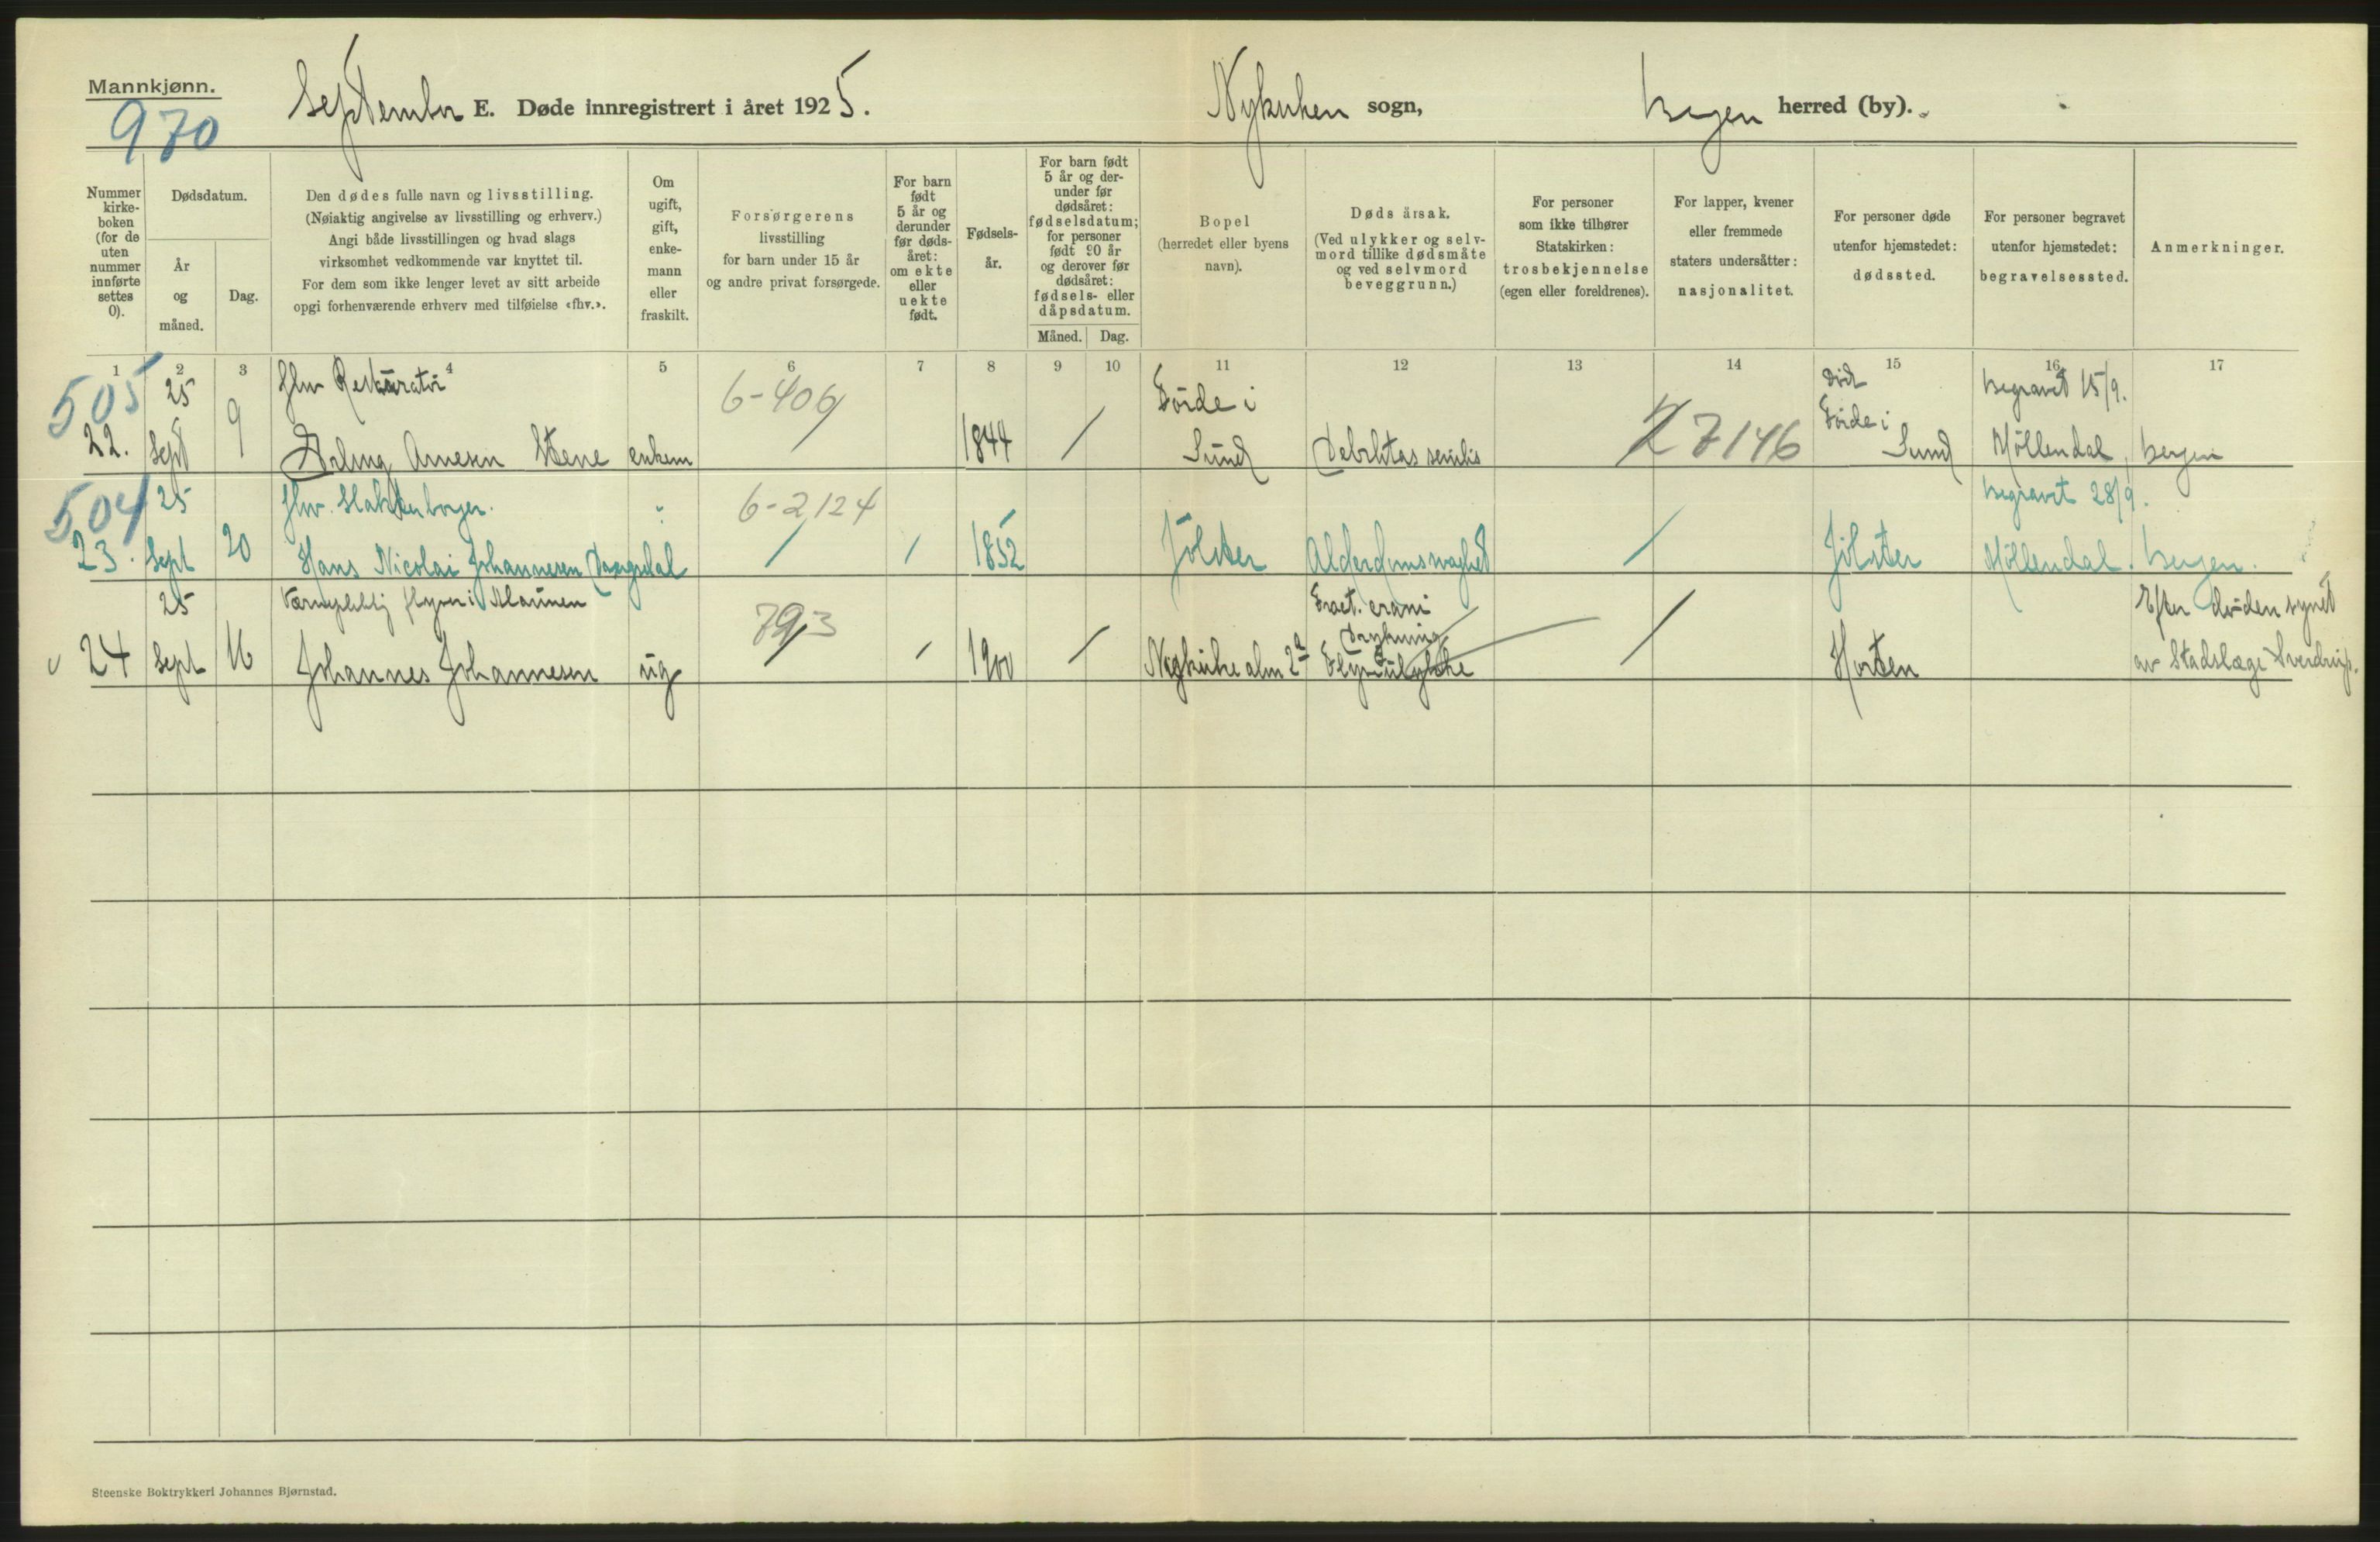 Mannkjønn.
970
September E. Døde innregistrert i året 1925.
Nykirken sogn,
Bergen herred (by).
Nummer kirke-boken (for de uten nummer innførte settes 0).
Dødsdatum.
År og måned.
Dag.
Den dødes fulle navn og livsstilling.
(Nøiaktig angivelse av livsstilling og erhverv.)
Angi både livsstillingen og hvad slags
virksomhet vedkommende var knyttet til.
For dem som ikke lenger levet av sitt arbeide
opgi forhenværende erhverv med tilføielse «fhv.».
Om ugift, gift, enke-mann eller fraskilt.
Forsørgerens
livsstilling
for barn under 15 år
og andre privat forsørgede.
For barn født 5 år og derunder før døds-året: om ekte eller uekte født.
Fødsels-år.
For barn født 5 år og der-under før dødsåret: fødselsdatum; for personer født 90 år og derover før dødsåret: fødsels- eller dåpsdatum.
Måned.
Dag.
Bopel
(herredet eller byens
navn).
Dødsårsak.
(Ved ulykker og selv-
mord tillike dødsmåte
og ved selvmord
beveggrunn.)
For personer
som ikke tilhører
Statskirken:
trosbekjennelse
(egen eller foreldrenes).
For lapper, kvener
eller fremmede
staters undersåtter:
nasjonalitet.
For personer døde
utenfor hjemstedet:
dødssted.
For personer begravet
utenfor hjemstedet:
begravelsessted.
Anmerkninger.
1 2 3 4 5 6 7 8 9 10 11 12 13 14 15 16 17
505 25 fhv Restauratør 6-406 Förde i död begravet 15/9.
22. Sept 9 Arnesen Stene enkem / 1844 / Sund Debilitas senilis 27146 Förde i Sund Möllendal, Bergen
504 25 fhv. " 6-2124 begravet 28/9.
23. Sept 20 Hans Nicolai Johannesen / / 1852 Jölster Alderdomsvaghed / Jölster Möllendal. Bergen.
25 Værnepliktig flyver i Marinen 793 Fract. crani Efter döden synet
24 Sept 16 Johannes Johannesen ug / / 1900 / Nykirkealm 2 Drukning Flyveulykke / Horten av Stadslæge Sverdrup.
Steenske Boktrykkeri Johannes Bjørnstad.